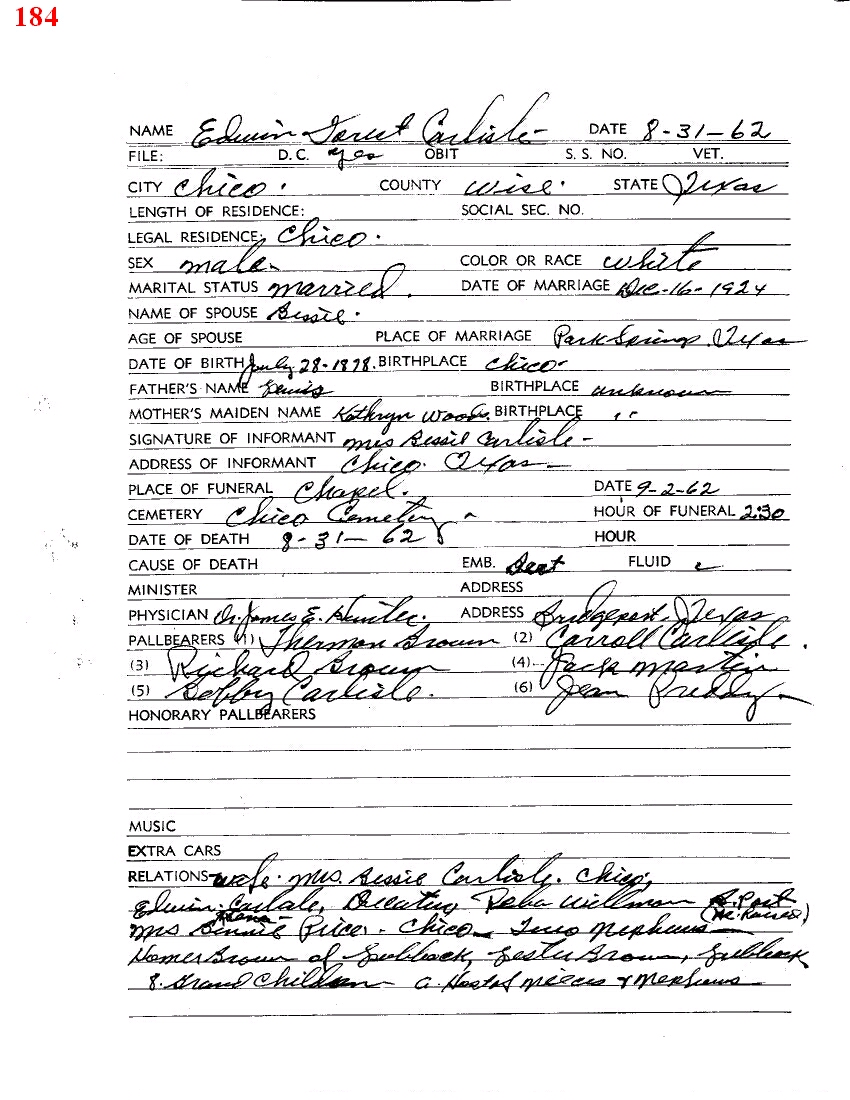 184
NAME Edwin Forest Carlisle DATE 8-31-62
FILE: D.C. yes OBIT S. S. NO. VET.
CITY Chico. COUNTY Wise. STATE Texas
LENGTH OF RESIDENCE: SOCIAL SEC. NO.
LEGAL RESIDENCE: Chico.
SEX male. COLOR OR RACE white
MARITAL STATUS married. DATE OF MARRIAGE Dec-16-1924
NAME OF SPOUSE Bessie.
AGE OF SPOUSE PLACE OF MARRIAGE Park Springs, Texas
DATE OF BIRTH July 28-1878. BIRTHPLACE Chico-
FATHER'S NAME BIRTHPLACE unknown
MOTHER'S MAIDEN NAME Kathryn Woods. BIRTHPLACE "
SIGNATURE OF INFORMANT Mrs Bessie Carlisle-
ADDRESS OF INFORMANT Chico. Texas-
PLACE OF FUNERAL Chapel. DATE 9-2-62
CEMETERY Chico Cemetery - HOUR OF FUNERAL 2:30
DATE OF DEATH 8-31-62 HOUR
CAUSE OF DEATH EMB. FLUID
MINISTER ADDRESS
PHYSICIAN Dr. James E. Hunter. ADDRESS Bridgeport. Texas
PALLBEARERS (1) Thermon Brown (2) Carroll Carlisle.
(3) Richard Brown (4) Jack Martin
(5) Bobby Carlisle. (6) Jean Preddy-
HONORARY PALLBEARERS
MUSIC
EXTRA CARS
RELATIONS- wife. Mrs. Bessie Carlisle. Chico,
Edwin Carlisle, Decatur, Reba Willman
Mrs Price - Chico - Two Nephews-
Homer Brown of Lubbock, Lester Brown, Lubbock
8. Grand Children - a. Host of nieces & Nephews-